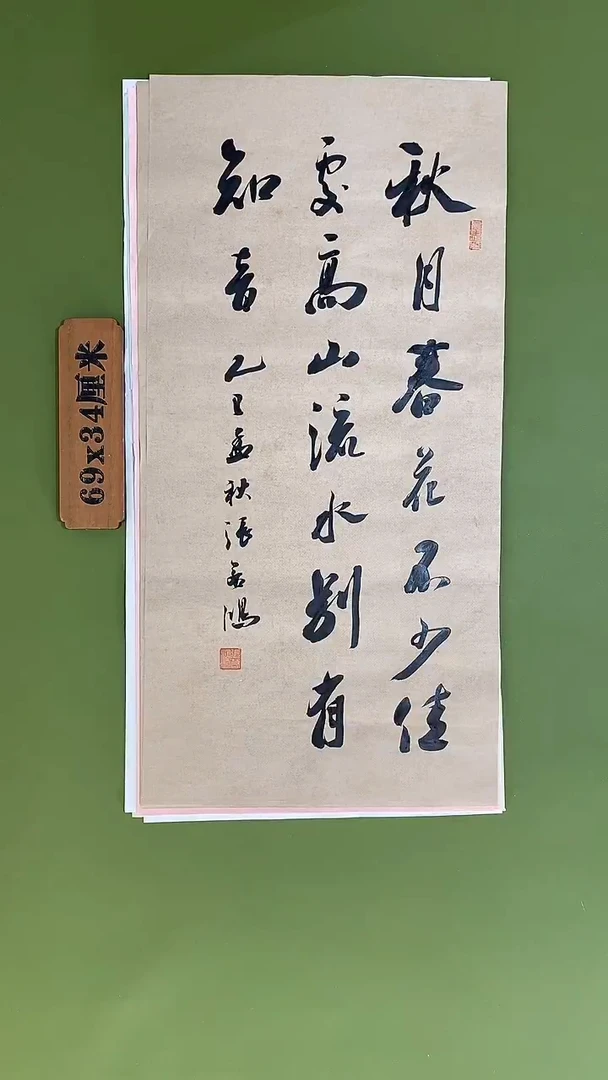 秋月春花不少佳
處高山流水别有
知音 乙巳孟秋張
69x34厘米